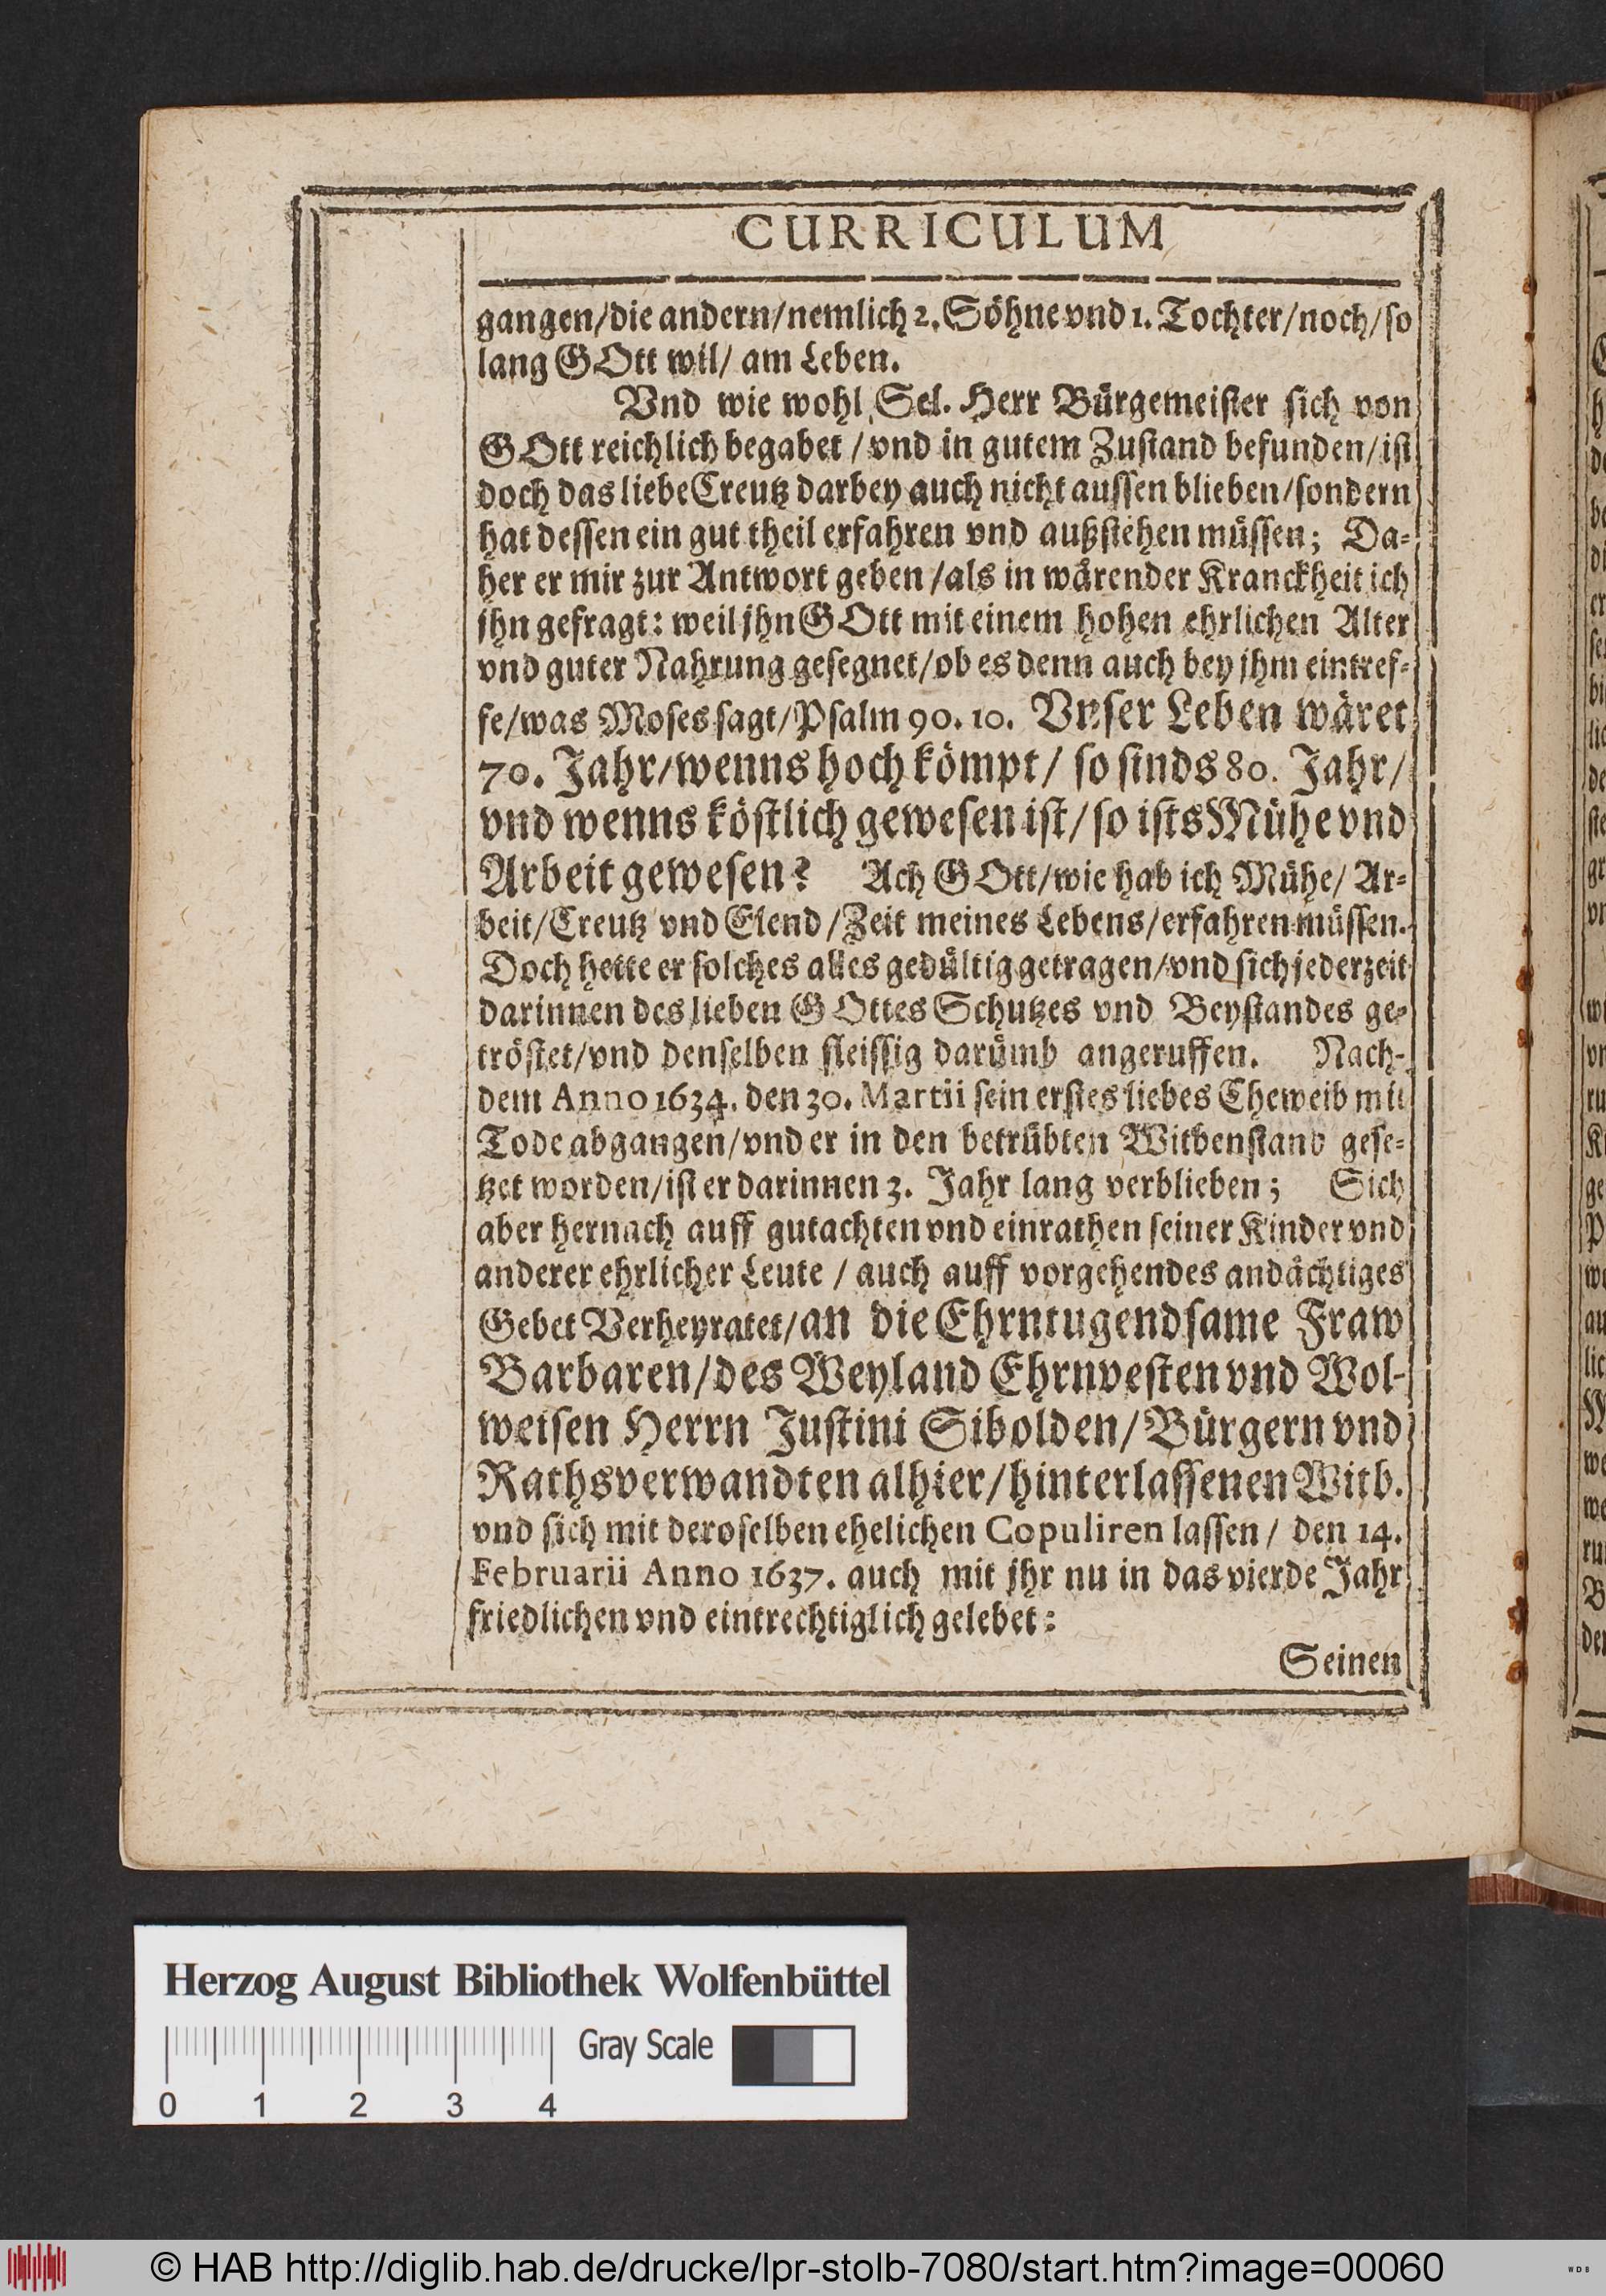 CURRICULUM
gangen/die andern/nemlich 2. Söhne vnd 1. Tochter/noch/so
lang GOtt wil/ am Leben.
Vnd wie wohl Sel. Herr Bürgemeister sich von
GOtt reichlich begabet / vnd in gutem Zustand befunden/ist
doch das liebe Creutz darbey auch nicht aussen blieben/sondern
hat dessen ein gut theil erfahren vnd außstehen müssen; Da-
her er mir zur Antwort geben /als in wärender Kranckheit ich
jhn gefragt: weil jhn GOtt mit einem hohen ehrlichen Alter
vnd guter Nahrung gesegnet/ob es denn auch bey jhm eintref-
fe/was Moses sagt/Psalm 90. 10. Vnser Leben wäret
70. Jahr/wenns hoch kömpt/ so sinds 80. Jahr/
vnd wenns köstlich gewesen ist/so ists Mühe vnd
Arbeit gewesen? Ach GOtt/wie hab ich Mühe/ Ar-
beit/Creutz vnd Elend /Zeit meines Lebens/erfahren müssen.
Doch hette er solches alles gedültig getragen/vnd sich jederzeit
darinnen des lieben GOttes Schutzes vnd Beystandes ge-
tröstet/vnd denselben fleissig darümb angeruffen. Nach-
dem Anno 1634. den 30. Martii sein erstes liebes Eheweib mit
Tode abgangen/vnd er in den betrübten Witbenstand gese-
tzet worden/ist er darinnen 3. Jahr lang verblieben; Sich
aber hernach auff gutachten vnd einrathen seiner Kinder vnd
anderer ehrlicher Leute / auch auff vorgehendes andächtiges
Gebet Verheyratet/an die Ehrntugendsame Fraw
Barbaren/des Weyland Ehrnvesten vnd Wol-
weisen Herrn Justini Sibolden/Bürgern vnd
Rathsverwandten alhier/hinterlassenen Witb.
vnd sich mit deroselben ehelichen Copuliren lassen / den 14.
Februarii Anno 1637. auch mit jhr nu in das vierde Jahr
friedlichen vnd eintrechtiglich gelebet:
Seinen
Herzog August Bibliothek Wolfenbüttel
Gray Scale
0 1 2 3 4
© HAB http://diglib.hab.de/drucke/lpr-stolb-7080/start.htm?image=00060
W D B